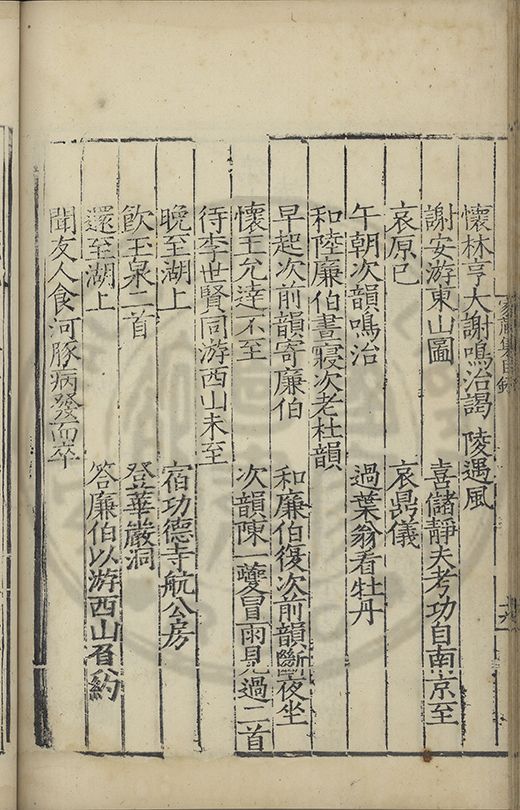 懷林亨大謝鳴治謁 陵遇風
謝安游東山圖 喜儲靜夫考功自南京至
哀原已 哀鼎儀
午朝次韻鳴治 過葉翁看牡丹
和陸廉伯晝寢次老杜韻
早起次前韻寄廉伯 和廉伯復次前韻斷夜坐
懷王允達不至 次韻陳一夔冒雨見過二首
待李世賢同游西山未至
晚至湖上 宿功德寺航公房
飲玉泉二首 登華嚴洞
還至湖上 答廉伯以游西山爽約
聞友人食河豚病發而卒